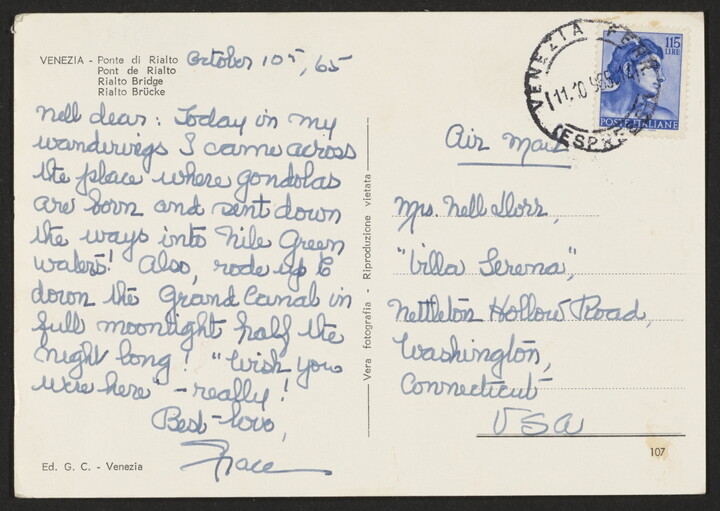 VENEZIA - Ponte di Rialto
Pont de Rialto
Rialto Bridge
Rialto Brücke
October 10th, '65
Nell dear: Today in my
wanderings I came across
the place where gondolas
are born and sent down
the ways into Nile Green
waters! Also, rode up &
down the Grand Canal in
full moonlight half the
night long! "Wish you
were here" - really!
Best love,
Grace
Ed. G. C. - Venezia
Vera fotografia - Riproduzione vietata
115
LIRE
POSTE ITALIANE
VENEZIA
11.10
(ESPR
Air Mail
Mrs. Nell Dorr,
"Villa Serena",
Nettleton Hollow Road,
Washington,
Connecticut
USA
107